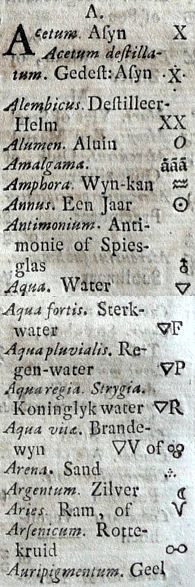 A.
Acetum. Asyn X
Acetum destilla-
tum. Gedest: Asyn Ẋ.
Alembicus. Destilleer-
Helm XX
Alumen. Aluin O
Amalgama. ããã
Amphora. Wyn-kan ♒
Annus. Een Jaar ☉
Antimonium. Anti-
monie of Spies-
glas ♁
Aqua. Water ▽
Aqua fortis. Sterk-
water ▽F
Aqua pluvialis. Re-
gen-water ▽P
Aqua regia. Strygia.
Koninglyk water ▽R
Aqua vitæ. Brande-
wyn ▽V of
Arena. Sand
Argentum. Zilver ☾
Aries. Ram, of ♈
Arsenicum. Rotte-
kruid o-o
Auripigmentum. Geel